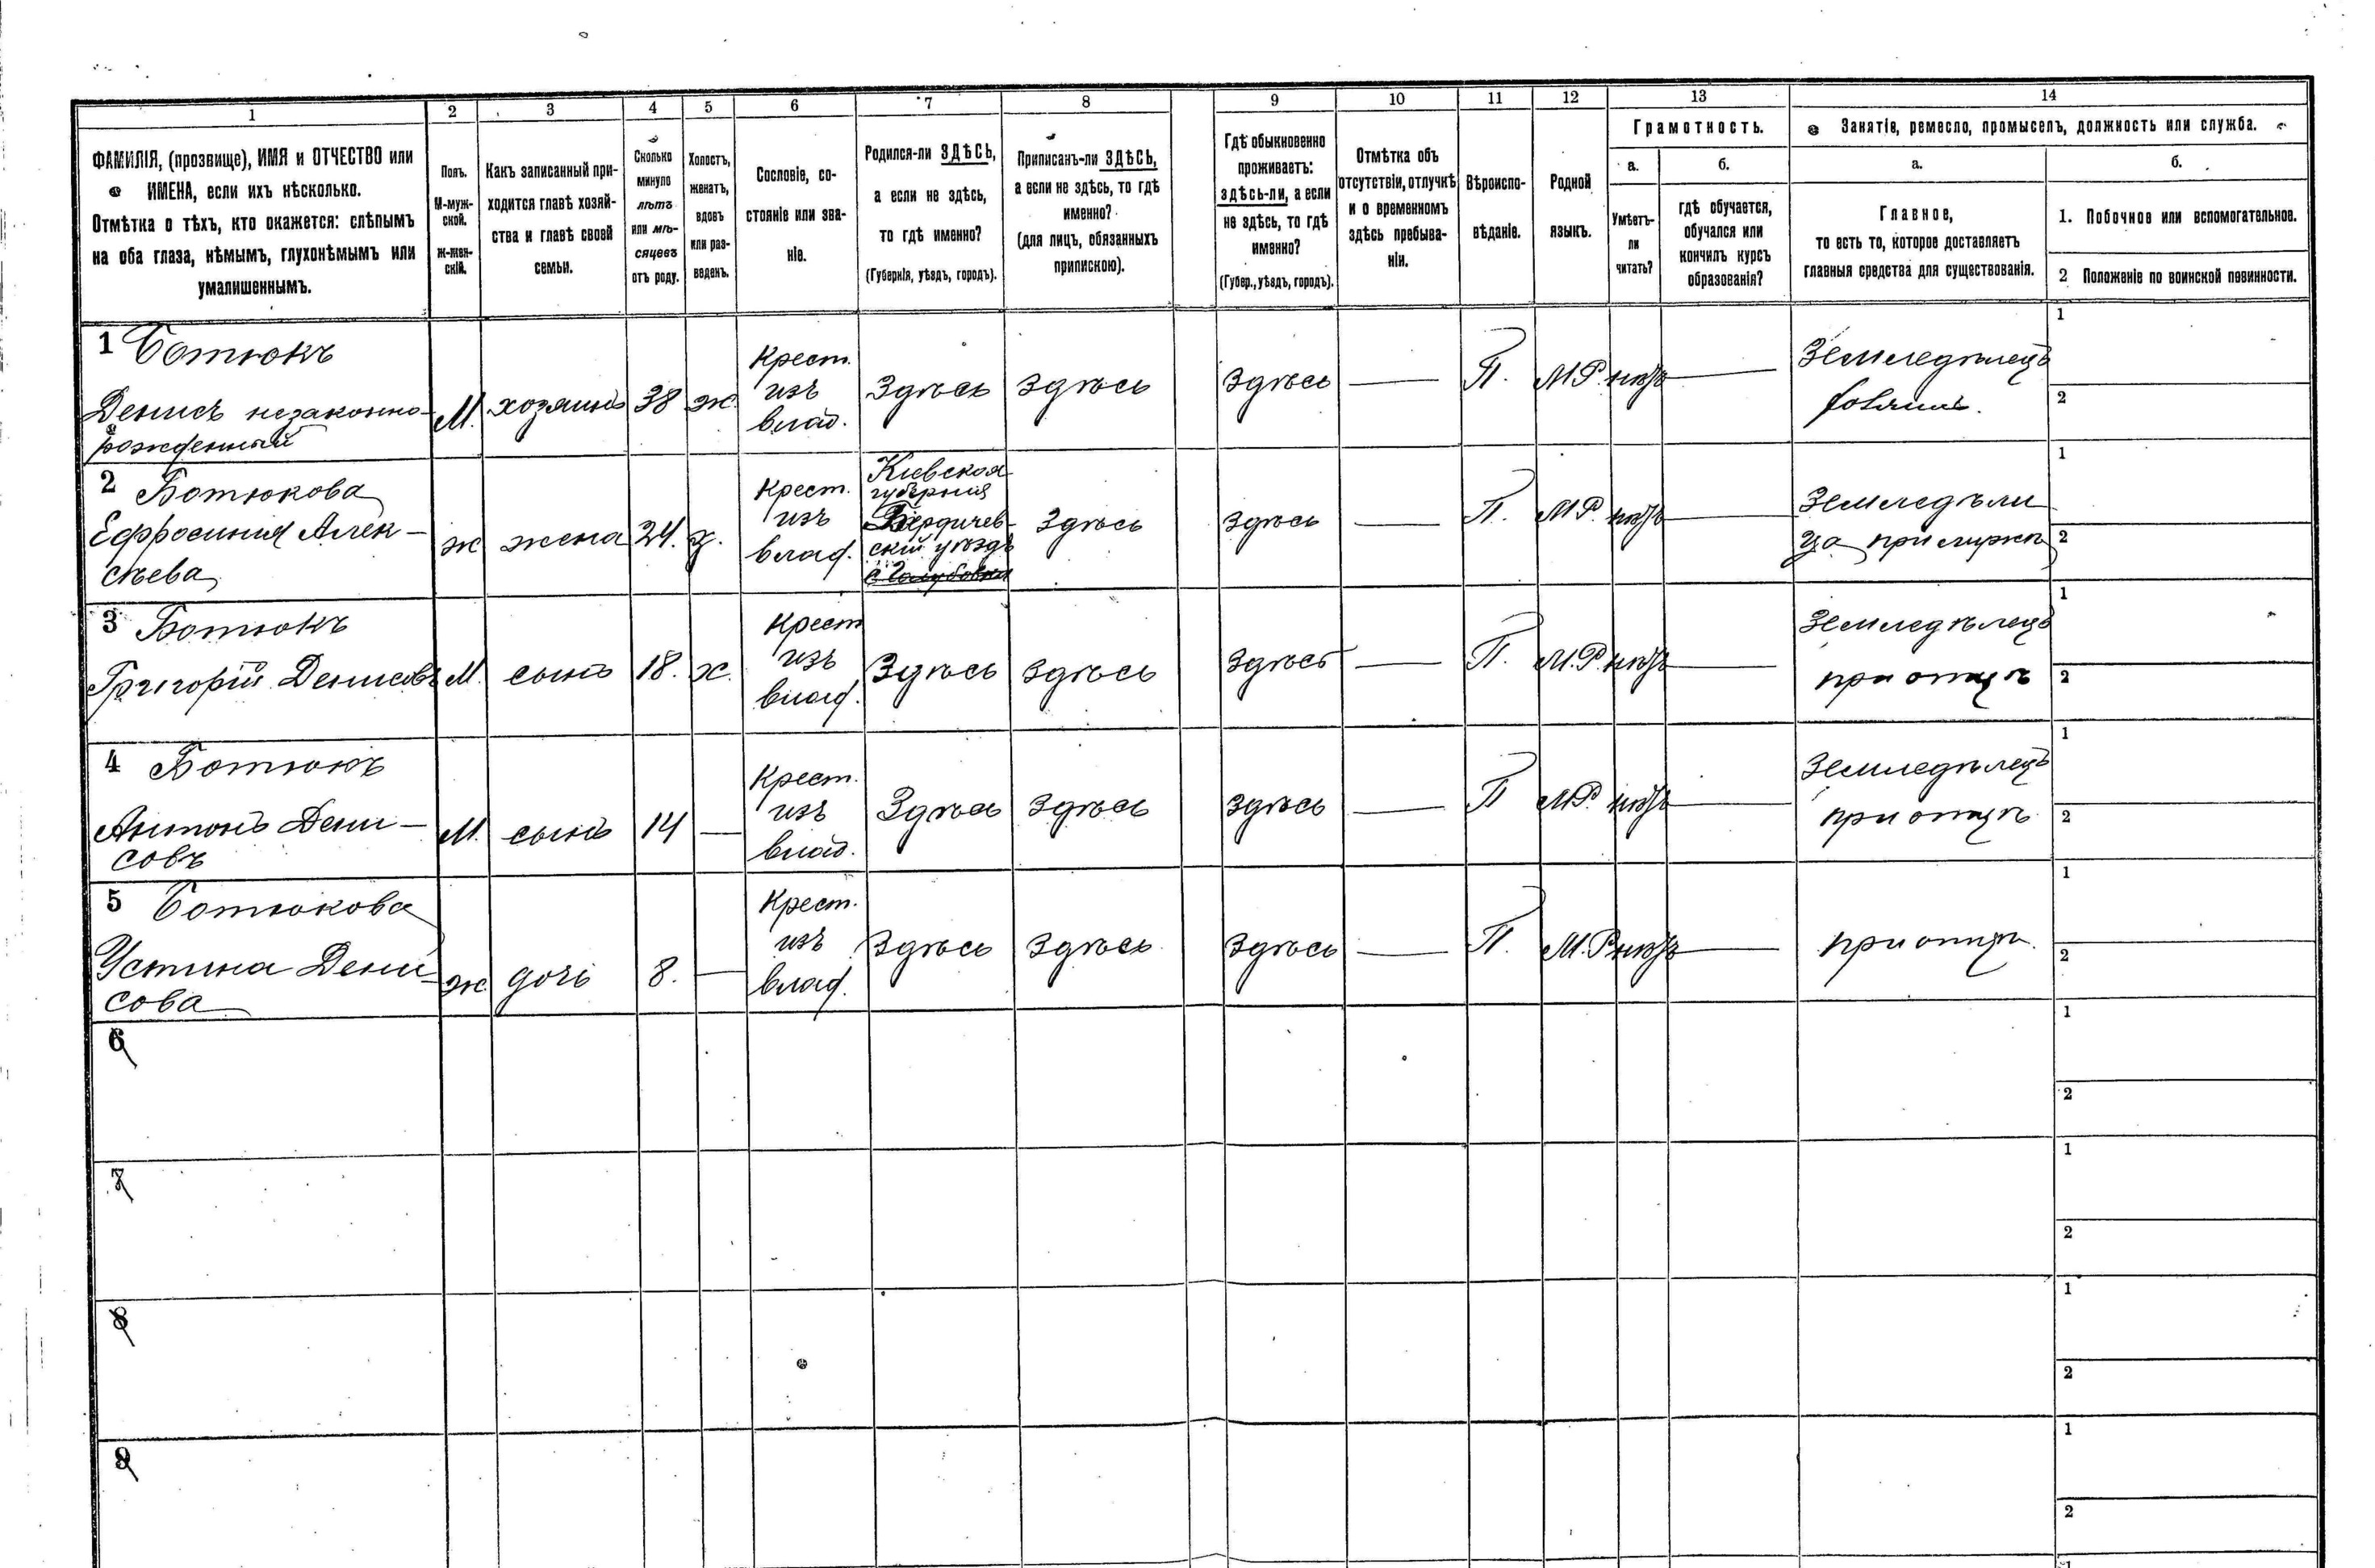 1 2 3 4 5 6 7 8 9 10 11 12 13 14
ФАМИЛІЯ, (прозвище), ИМЯ и ОТЧЕСТВО или
ИМЕНА, если ихъ нѣсколько.
Отмѣтка о тѣхъ, кто окажется: слѣпымъ
на оба глаза, нѣмымъ, глухонѣмымъ или
умалишеннымъ.
Полъ.
М-муж-
ской.
ж-жен-
скій.
Какъ записанный при-
ходится главѣ хозяй-
ства и главѣ своей
семьи.
Сколько
минуло
лѣтъ
или мѣ-
сяцевъ
отъ роду.
Холостъ,
женатъ,
вдовъ
или раз-
веденъ.
Сословіе, со-
стояніе или зва-
ніе.
Родился-ли ЗДѢСЬ,
а если не здѣсь,
то гдѣ именно?
(Губернія, уѣздъ, городъ).
Приписанъ-ли ЗДѢСЬ,
а если не здѣсь, то гдѣ
именно?
(для лицъ, обязанныхъ
припискою).
Гдѣ обыкновенно
проживаетъ:
здѣсь-ли, а если
не здѣсь, то гдѣ
именно?
(Губер., уѣздъ, городъ).
Отмѣтка объ
отсутствіи, отлучкѣ
и о временномъ
здѣсь пребыва-
ніи.
Вѣроиспо-
вѣданіе.
Родной
языкъ.
Грамотность.
а.
Умѣетъ-
ли
читать?
б.
гдѣ обучается,
обучался или
кончилъ курсъ
образованія?
Занятіе, ремесло, промыселъ, должность или служба.
а.
Главное,
то есть то, которое доставляетъ
главныя средства для существованія.
б.
1. Побочное или вспомогательное.
2 Положеніе по воинской повинности.
1 Ботюкъ
Денисъ незаконно-
рожденный
М.
хозяинъ
38
ж.
Крест.
изъ
влад.
Здѣсь
здѣсь
здѣсь
—
П.
М.Р.
нѣтъ
—
Земледѣлецъ
1
2
2 Ботюкова
Ефросинія Алек-
сѣева
ж
жена
24.
з.
Крест.
изъ
влад.
Кіевская
губернія
Бердичев-
скій уѣздъ
здѣсь
здѣсь
—
П.
М.Р.
нѣтъ
—
Земледѣли
ца при мужѣ
1
2
3 Ботюкъ
Григорій Денисовъ
М.
сынъ
18.
х.
Крест
изъ
влад.
Здѣсь
здѣсь
здѣсь
—
П.
М.Р.
нѣтъ
—
Земледѣлецъ
при отцѣ
1
2
4 Ботюкъ
Антонъ Дени-
совъ
М.
сынъ
14
—
Крест.
изъ
влад.
Здѣсь
здѣсь
здѣсь
—
П
М.Р.
нѣтъ
—
Земледѣлецъ
при отцѣ
1
2
5 Ботюкова
Устина Дени
сова
ж.
дочь
8.
—
Крест.
изъ
влад.
Здѣсь
здѣсь
здѣсь
—
П.
М.Р.
нѣтъ
—
при отцѣ.
1
2
6
1
2
7
1
2
8
1
2
9
1
2
1